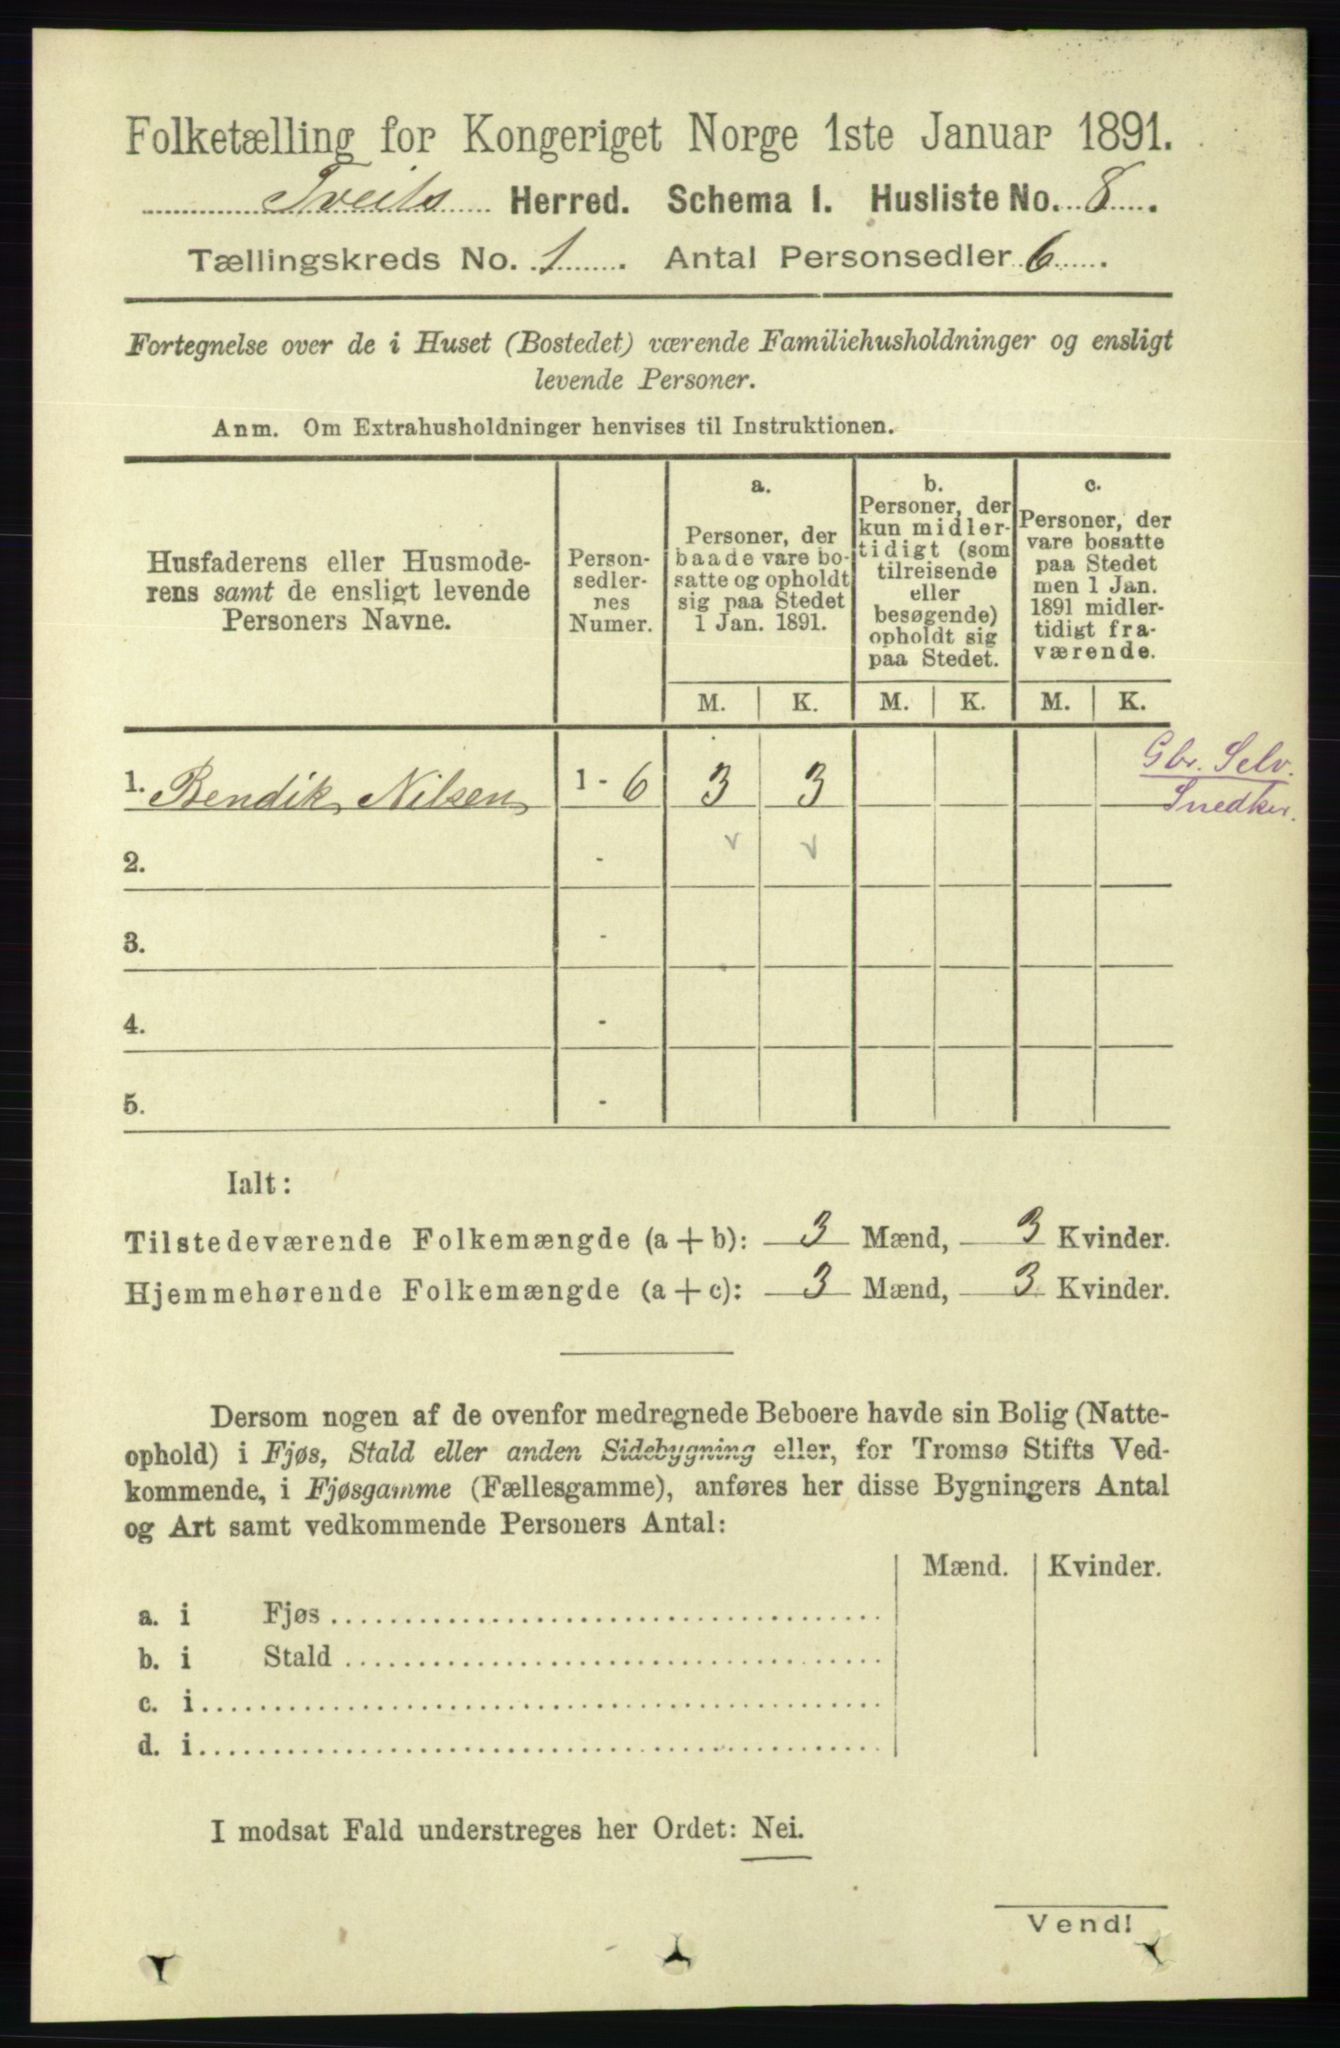 Folketælling for Kongeriget Norge 1ste Januar 1891.
Tveits Herred. Schema I. Husliste No. 8.
Tællingskreds No. 1. Antal Personsedler 6.
Fortegnelse over de i Huset (Bostedet) værende Familiehusholdninger og ensligt
levende Personer.
Anm. Om Extrahusholdninger henvises til Instruktionen.
Husfaderens eller Husmode-
rens samt de ensligt levende
Personers Navne.
Person-
sedler-
nes
Numer.
a.
Personer, der
baade vare bo-
satte og opholdt
sig paa Stedet
1 Jan. 1891.
b.
Personer, der
kun midler-
tidigt (som
tilreisende
eller
besøgende)
opholdt sig
paa Stedet.
c.
Personer, der
vare bosatte
paa Stedet
men 1 Jan.
1891 midler-
tidigt fra-
værende.
M. K. M. K. M. K.
Gbr. Selv.
1. Bendik Nilsen 1 - 6 3 3 Snedker.
2. - v v
3. -
4. -
5. -
Ialt:
Tilstedeværende Folkemængde (a + b): 3 Mænd, 3 Kvinder.
Hjemmehørende Folkemængde (a + c): 3 Mænd, 3 Kvinder.
Dersom nogen af de ovenfor medregnede Beboere havde sin Bolig (Natte-
ophold) i Fjøs, Stald eller anden Sidebygning eller, for Tromsø Stifts Ved-
kommende, i Fjøsgamme (Fællesgamme), anføres her disse Bygningers Antal
og Art samt vedkommende Personers Antal:
Mænd. Kvinder.
a. i Fjøs
b. i Stald
c. i
d. i
I modsat Fald understreges her Ordet: Nei.
Vend!